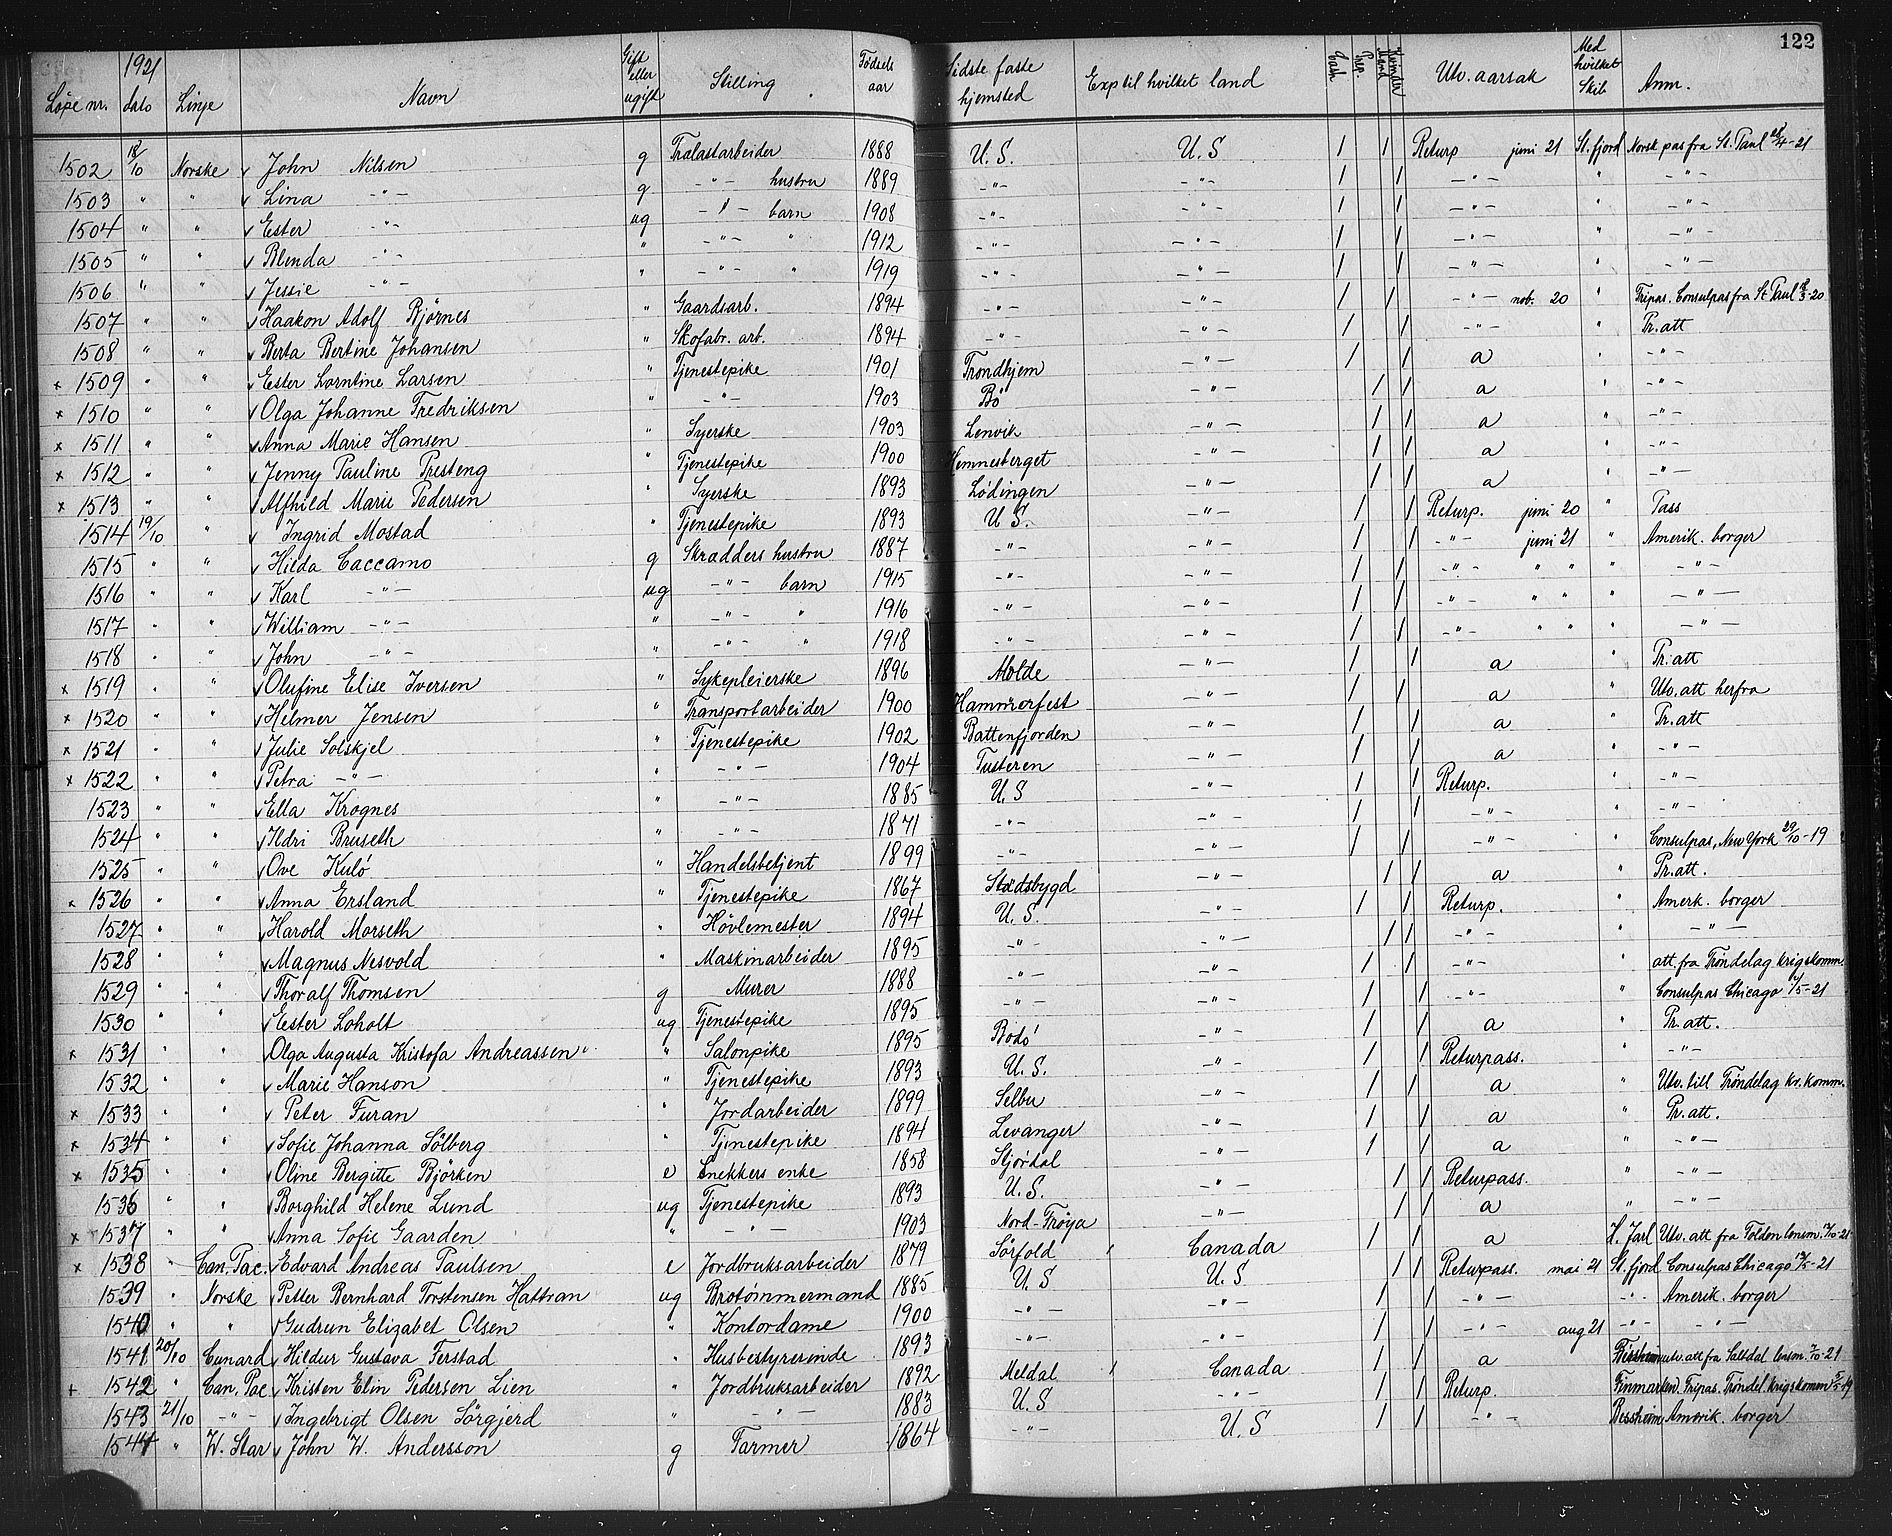 122
1921
Løpe nr. dato Linje Navn Gift eller ugift Stilling Fødsels aar Sidste faste hjemsted Exp til hvilket land Cash Prep. Mænd Kvinder Utv. aarsak Med hvilket Skib Anm.
1502 18/10 Norske v John Nilsen g Trælastarbeider 1888 U.S. U.S 1 1 Returp juni 21 St.fjord Norsk pas fra St. Paul /4-21
1503 " " v Lina -"- g -"- hustru 1889 -"- -"- 1 1 -"- " -"-
1504 " " v Ester -"- ug -"- barn 1908 -"- -"- 1 1 -"- " -"-
1505 " " v Blenda -"- " -"- " 1912 -"- -"- 1 1 -"- " -"-
1506 " " v Jessie -"- " -"- " 1919 -"- -"- 1 1 -"- " -"-
1507 " " v Haakon Adolf Bjørnes " Gaardsarb. 1894 -"- -"- 1 1 -"- nob. 20 " Fripas. Consulpas fra St Paul /3-20
1508 " " v Berta Bertine Johansen " Skofabr. arb. 1894 -"- -"- 1 1 -"- " Pr. att
x 1509 " " v Ester Lorntine Larsen " Tjenestepike 1901 Trondhjem -"- 1 1 a " -"-
x 1510 " " v Olga Johanne Fredriksen " -"- 1903 Bö -"- 1 1 a " -"-
x 1511 " " v Anna Marie Hansen " Syerske 1903 Lenvik -"- 1 1 a " -"-
x 1512 " " v Jenny Pauline Presteng " Tjenestepike 1900 Hemnesberget -"- 1 1 a " -"-
x 1513 " " v Alfhild Marie Pedersen " Syerske 1893 Lödingen -"- 1 1 a " -"-
1514 19/10 " v Ingrid Mostad " Tjenestepike 1893 U.S. -"- 1 1 Returp. juni 20 " Pass
1515 " " v Hilda Caccamo g Skrædders hustru 1887 -"- -"- 1 1 -"- juni 21 " Amerik. borger
1516 " " v Karl -"- ug -"- barn 1915 -"- -"- 1 1 -"- " " " -"-
1517 " " v William -"- " -"- " 1916 -"- -"- 1 1 -"- " " " -"-
1518 " " v John -"- " -"- " 1918 -"- -"- 1 1 -"- " " " -"-
x 1519 " " v Olufine Elise Iversen " Sykepleierske 1896 Molde -"- 1 1 a " Pr. att
x 1520 " " v Helmer Jensen " Transportarbeider 1900 Hammerfest -"- 1 1 a " Utv. att herfra
x 1521 " " v Julie Solskjel " Tjenestepike 1902 Battenfjorden -"- 1 1 a " Pr. att
x 1522 " " v Petra -"- " -"- 1904 Tusteren -"- 1 1 a " -"-
1523 " " v Ella Krognes " -"- 1885 U.S -"- 1 1 Returp. " -"-
1524 " " v Ildri Bruseth " -"- 1871 -"- -"- 1 1 -"- " -"-
1525 " " v Ove Kulö " Handelsbetjent 1899 -"- -"- 1 1 -"- " Consulpas, New York 29/10-19
x 1526 " " v Anna Ersland " Tjenestepike 1867 Stadsbygd -"- 1 1 a " Pr. att.
1527 " " v Harold Morseth " Høvlemester 1894 U.S. -"- 1 1 Returp. " Amerk. borger
1528 " " v Magnus Nesvold " Maskinarbeider 1895 -"- -"- 1 1 -"- " -"-
1529 " " v Thoralf Thomsen g Murer 1888 -"- -"- 1 1 -"- " att. fra Tröndelag krigskomm.
1530 " " v Ester Loholt ug Tjenestepike 1895 -"- -"- 1 1 -"- " Consulpas Chicago /5-21
x 1531 " " v Olga Augusta Kristofa Andreassen " Salonpike 1895 Bodö -"- 1 1 a " Pr. att.
1532 " " v Marie Hanson " Tjenestepike 1893 U.S. -"- 1 1 Returpass. " -"-
x 1533 " " v Peter Furan " Jordarbeider 1899 Selbu -"- 1 1 a " Utv. till Tröndelag kr. komm.
x 1534 " " v Sofie Johanna Sölberg " Tjenestepike 1894 Levanger -"- 1 1 a " Pr. att.
x 1535 " " v Oline Bergitte Björken e Snekkers enke 1858 Stjördal -"- 1 1 a " -"-
1536 " " v Borghild Helene Lund ug Tjenestepike 1893 U.S. -"- 1 1 Returpass. " -"-
x 1537 " " v Anna Sofie Gaarden " -"- 1903 Nord-Fröya -"- 1 1 a " -"-
x 1538 " Can. Pac. v Edvard Andreas Paulsen e Jordbruksarbeider 1879 Sörfold Canada 1 1 a H. Jarl Utv. att fra Folden lensm. /10-21
1539 " Norske v Petter Bernhard Torstensen Hattran ug Brotømmermand 1885 U.S U.S 1 1 Returpass. mai 21 St. fjord Consulpas Chicago /5-21
1540 " " v Gudrun Elizabet Olsen " Kontordame 1900 -"- -"- 1 1 -"- -"- Amerik. borger
1541 20/10 Cunard v Hildur Gustava Ferstad " Husbestyrerinde 1893 -"- -"- 1 1 -"- aug 21 -"- -"-
+ 1542 " Can. Pac v Kristen Elin Pedersen Lien " Jordbruksarbeider 1892 Meldal Canada 1 1 a utv. att fra Saltdal lensm. /10-21
1543 21/10 -"- v Ingebrigt Olsen Sörgjerd " -"- 1883 U.S -"- 1 1 Returp. Finmarken Fripas. Tröndel. krigskomm /5-19
1544 " W. Star v John W. Andersson g Farmer 1864 -"- U.S 1 1 -"- Bessheim Amerik. borger